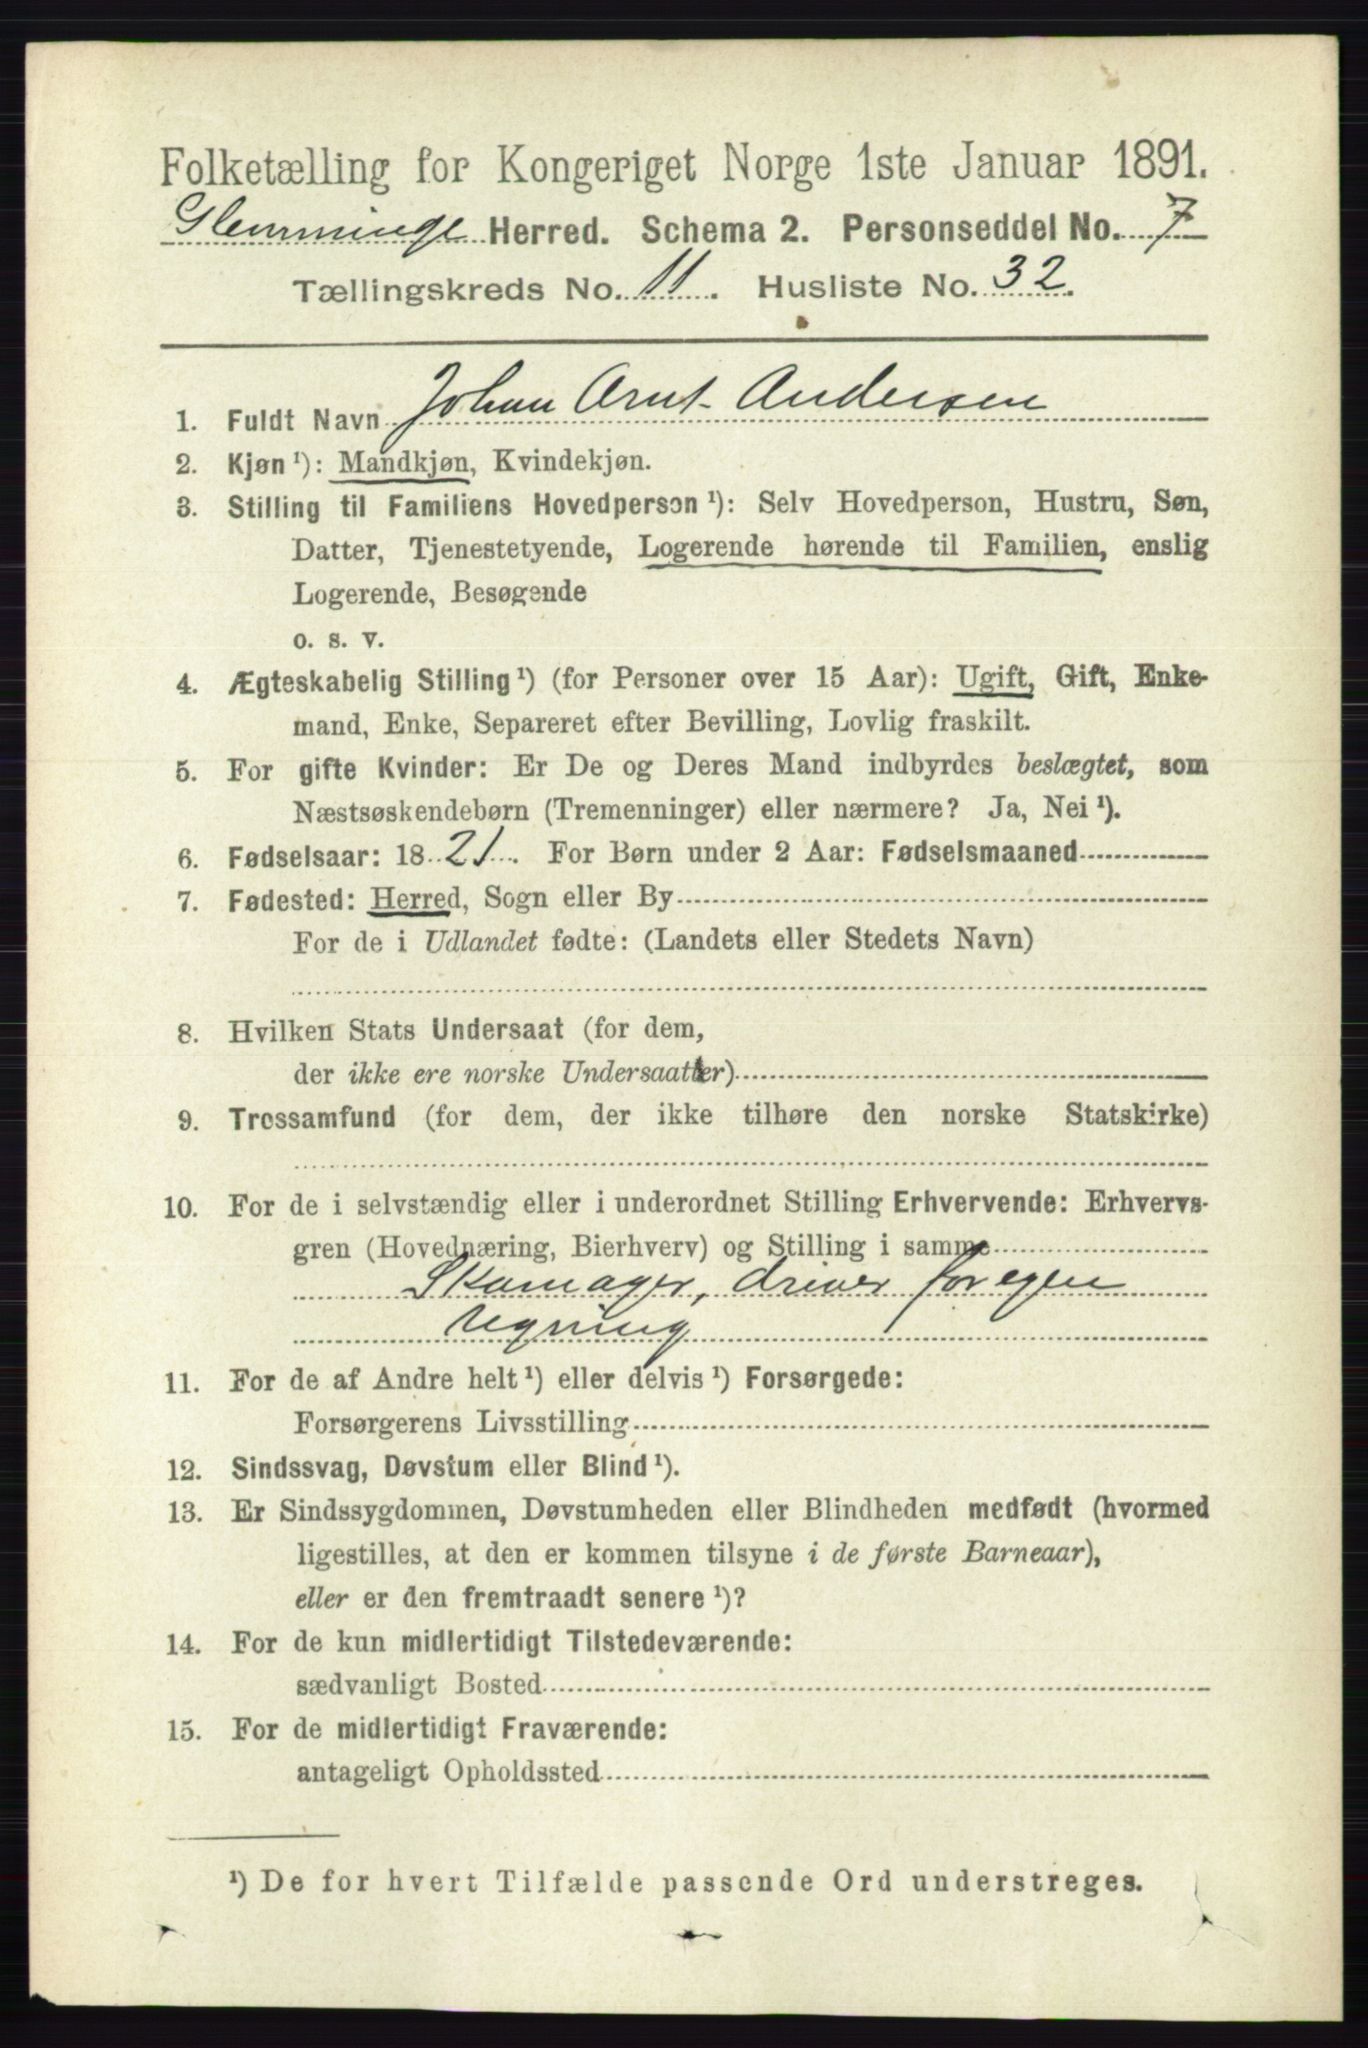 Folketælling for Kongeriget Norge 1ste Januar 1891.
Glemminge Herred. Schema 2. Personseddel No. 7
Tællingskreds No. 11. Husliste No. 32.
1. Fuldt Navn Johan Arnt Andersen
2. Kjøn ¹): Mandkjøn, Kvindekjøn.
3. Stilling til Familiens Hovedperson ¹): Selv Hovedperson, Hustru, Søn,
Datter, Tjenestetyende, Logerende hørende til Familien, enslig
Logerende, Besøgende
o. s. v.
4. Ægteskabelig Stilling ¹) (for Personer over 15 Aar): Ugift, Gift, Enke-
mand, Enke, Separeret efter Bevilling, Lovlig fraskilt.
5. For gifte Kvinder: Er De og Deres Mand indbyrdes beslægtet, som
Næstsøskendebørn (Tremenninger) eller nærmere? Ja, Nei ¹).
6. Fødselsaar: 1821. For Børn under 2 Aar: Fødselsmaaned
7. Fødested: Herred, Sogn eller By
For de i Udlandet fødte: (Landets eller Stedets Navn)
8. Hvilken Stats Undersaat (for dem,
der ikke ere norske Undersaatter)
9. Trossamfund (for dem, der ikke tilhøre den norske Statskirke)
10. For de i selvstændig eller i underordnet Stilling Erhvervende: Erhvervs-
gren (Hovednæring, Bierhverv) og Stilling i samme
Skomager, driver for egen
regning
11. For de af Andre helt ¹) eller delvis ¹) Forsørgede:
Forsørgerens Livsstilling
12. Sindssvag, Døvstum eller Blind ¹).
13. Er Sindssygdommen, Døvstumheden eller Blindheden medfødt (hvormed
ligestilles, at den er kommen tilsyne i de første Barneaar),
eller er den fremtraadt senere ¹)?
14. For de kun midlertidigt Tilstedeværende:
sædvanligt Bosted
15. For de midlertidigt Fraværende:
antageligt Opholdssted
¹) De for hvert Tilfælde passende Ord understreges.